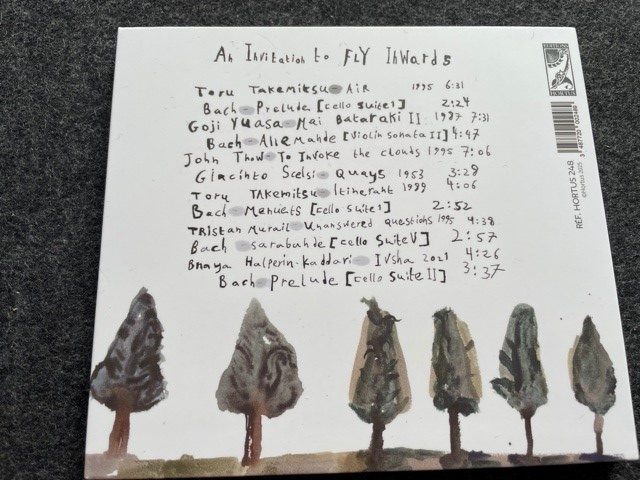 An Invitation to FLY Inwards
Toru Takemitsu Air 1995 6:31
Bach Prelude [cello suite I] 2:24
Goji Yuasa Mai Bataraki II 1987 7:31
Bach Allemande [Violin sonata II] 4:47
John Thow To Invoke the clouds 1995 7:06
Giacinto Scelsi Quays 1953 3:28
Toru Takemitsu Itinerant 1989 4:06
Bach Menuets [cello suite I] 2:52
Tristan Murail Unanswered questions 1995 4:38
Bach sarabande [cello suite V] 2:57
Bnaya Halperin-Kaddari Ivsha 2021 4:26
Bach Prelude [cello suite II] 3:37
EDITIONS
HORTUS
REF. HORTUS 248
©Hortus 2025